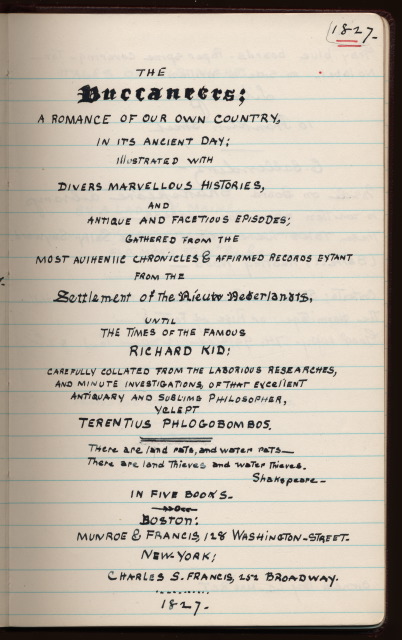 (1827.
THE
Buccaneers;
A ROMANCE OF OUR OWN COUNTRY,
IN ITS ANCIENT DAY;
ILLUSTRATED WITH
DIVERS MARVELLOUS HISTORIES,
AND
ANTIQUE AND FACETIOUS EPISODES;
GATHERED FROM THE
MOST AUTHENTIC CHRONICLES & AFFIRMED RECORDS EXTANT
FROM THE
Settlement of the Nieuw Nederlandts,
UNTIL
THE TIMES OF THE FAMOUS
RICHARD KID;
CAREFULLY COLLATED FROM THE LABORIOUS RESEARCHES,
AND MINUTE INVESTIGATIONS, OF THAT EXCELLENT
ANTIQUARY AND SUBLIME PHILOSOPHER,
YCLEPT
TERENTIUS PHLOGOBOMBOS.
There are land rats, and water rats—
There are land Thieves and water Thieves.
Shakspeare—
IN FIVE BOOKS—
BOSTON:
MUNROE & FRANCIS, 128 WASHINGTON-STREET.
NEW-YORK;
CHARLES S. FRANCIS, 252 BROADWAY.
1827—